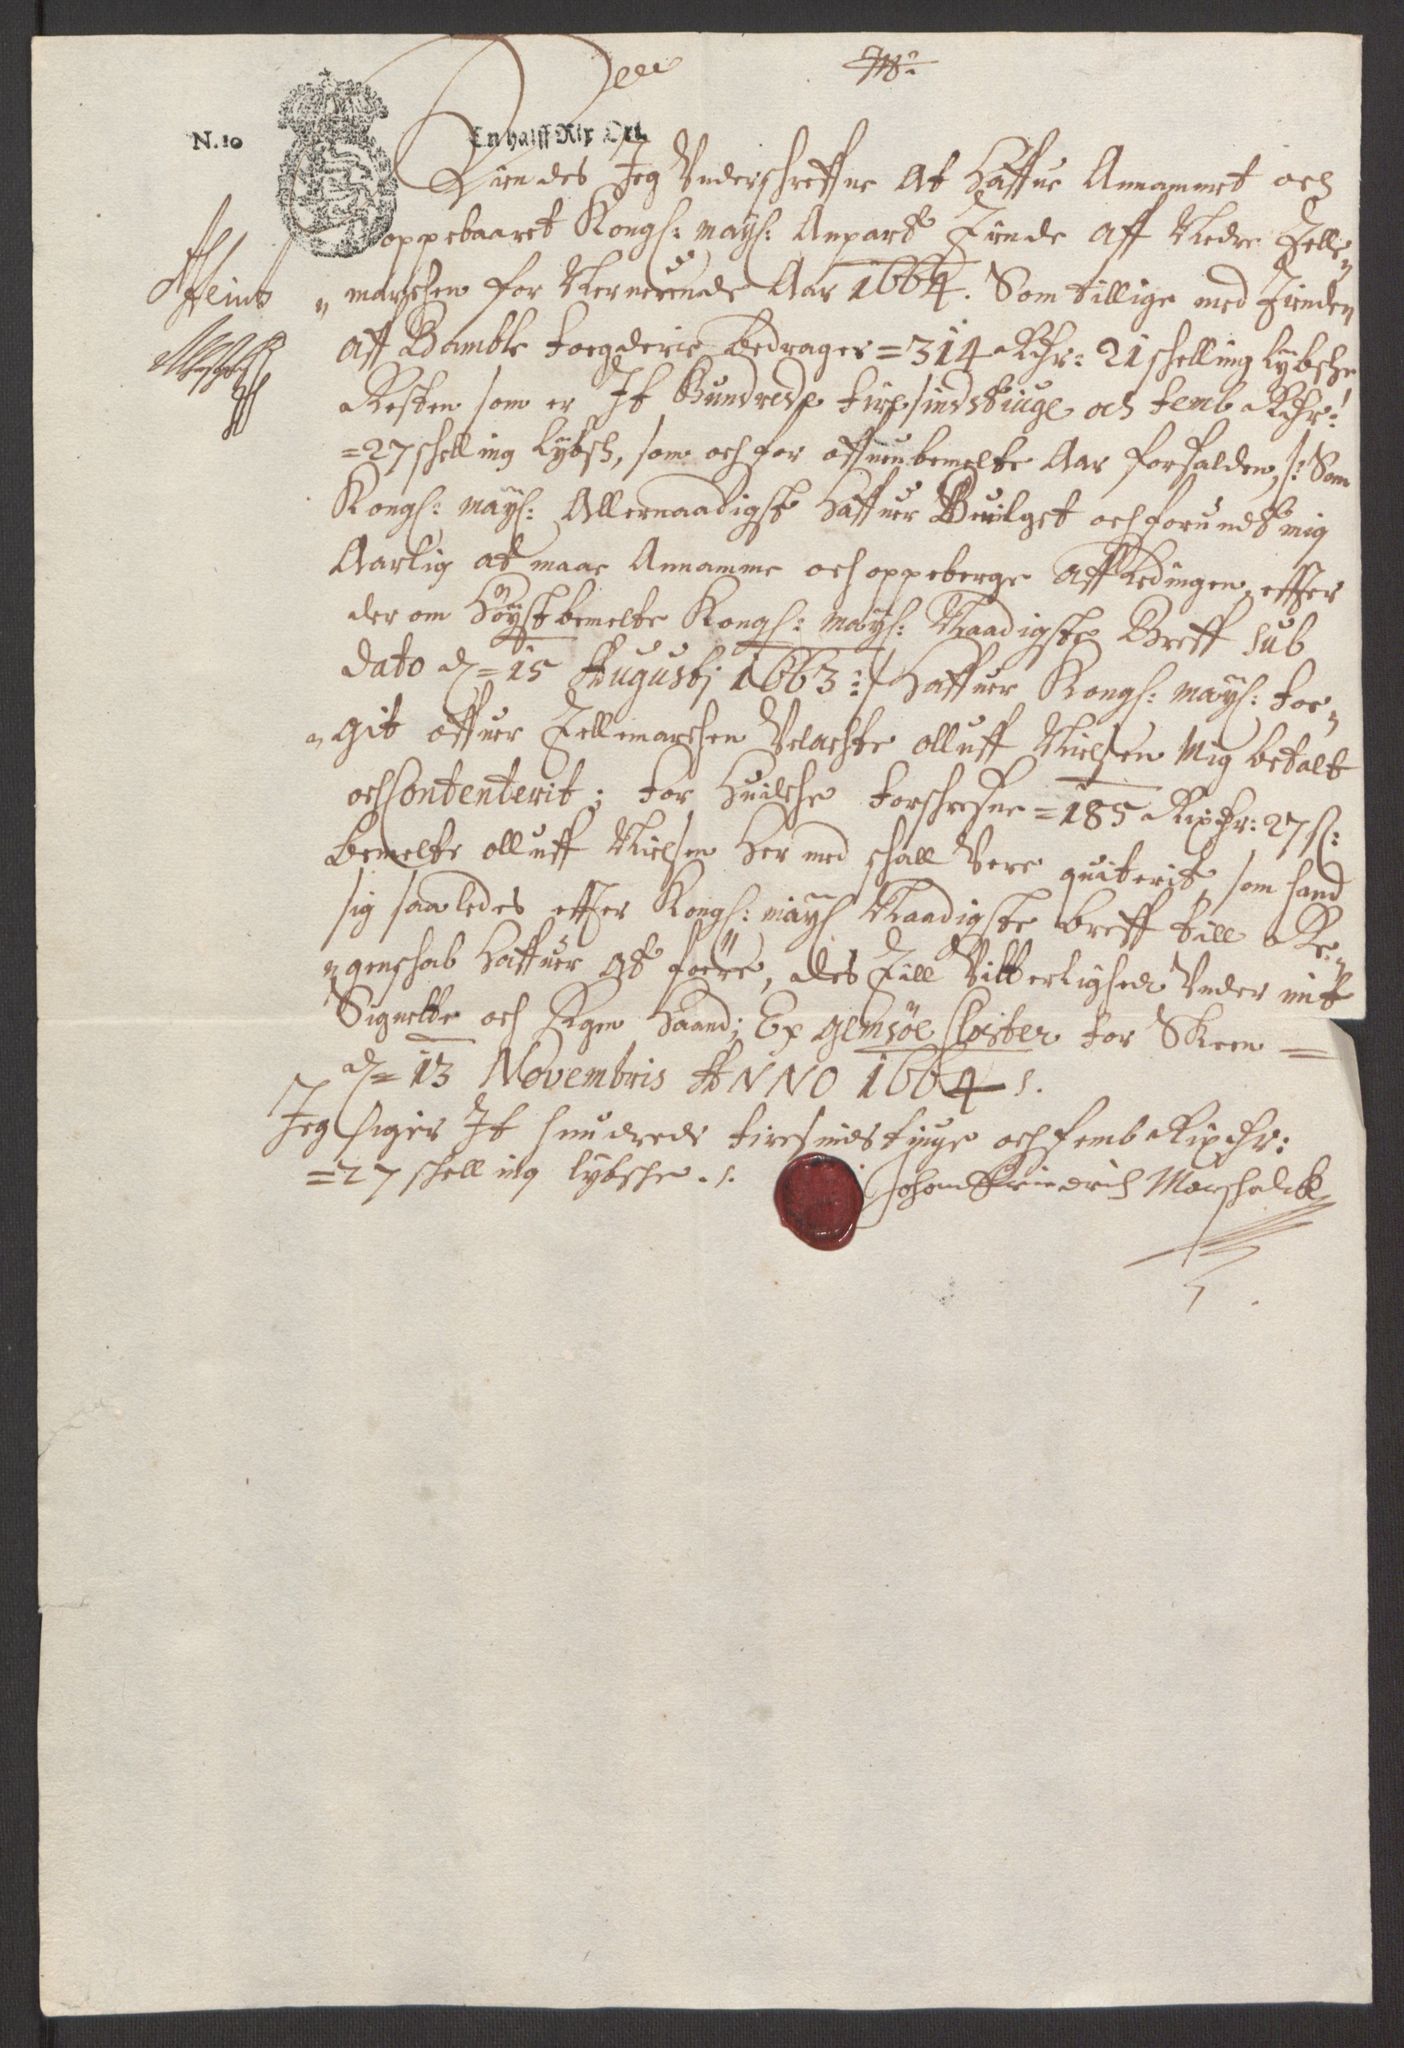 N. 10
En halff Rix Ort
Kiendes Jeg Underschreffne At Haffue Annammet och
oppebaaret Kongl: mayt: Anpart Tiende aff Nedre Telle„
„marchen for Nerverende Aar 1664. Som tillige med Tienden
aff Bamble foegderie bedrager = 314 Rdr: 21 schelling lybsche
Resten som er It Hundrede fiirsindstiuge och femb Rdr:
= 27 schelling lybsch, som och for offuenbemelte Aar forfalden, /: Som
Kongl: mayt: Allernaadigst Haffuer Beuilget och forundt mig
Aarlig at maae Annamme och oppeberge aff tedingen, effter
der om Höystbemelte Kongl: mayt: Naadigste Breff sub
dato d = 15 Augustj 1663 :/ Haffuer Kongl: mayt: foe„
„git offuer Tellemarchen Velachte olluff Nielsen Mig betalt
och Contenterit; for Huilche forschrefne = 185 Rixdr: 27 sl:
bemelte olluff Nielsen Her med schall Vere quiterit, som hand
sig saaledes effter Kongl: mayt: Naadigste breff till Re„
„genschab Haffuer at foere, des Till Vitterlighed Under mit
Signette och Egen Haand; Ex gemsöe Closter for Skeen =
d = 13 Novembris ANNO 1664 /.
Jeg siger It hundrede firesindstiuge och femb Rixdr:
= 27 schelling lybsche. /.
Johan Friedrich Marschalck